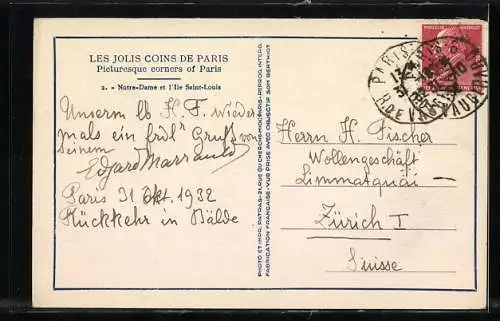 LES JOLIS COINS DE PARIS
Picturesque corners of Paris
2. - Notre-Dame et l'Ile Saint-Louis
Unserm lb H. F. Wieder
mals ein Gruß von
Seinem
Edgard
Paris 31 Okt. 1932
Rückkehr in Bälde
PHOTO ET IMP. PATRAS - 21, RUE DU CHERCHE-MIDI, PARIS - REPROD. INTERD.
FABRICATION FRANÇAISE - VUE PRISE AVEC OBJECTIF SOM BERTHIOT
PARIS
R. DE
Herrn H. Fischer
Wollengeschäft
Limmatquai -
Zürich I
Suisse